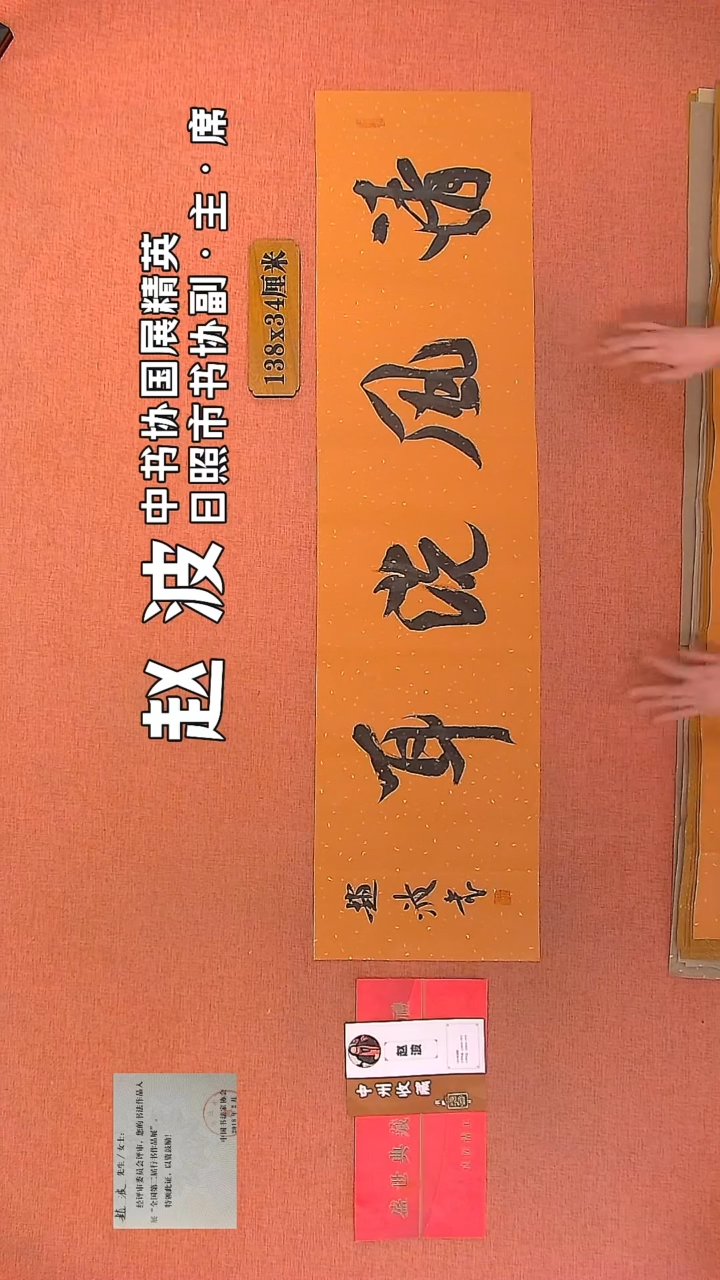 赵波
中书协国展精英
日照市书协副·主·席
138x34厘米
清風洗耳
趙波书
赵波
中州收藏
盛世典藏
赵波 先生／女士：
经评审委员会评审，您的书法作品入
展“全国第二届行书作品展”。
特颁此证，以资鼓励！
中国书法家协会